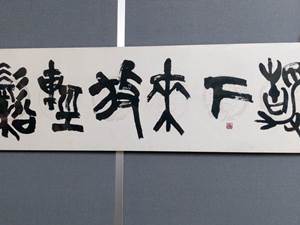 下來放輕鬆